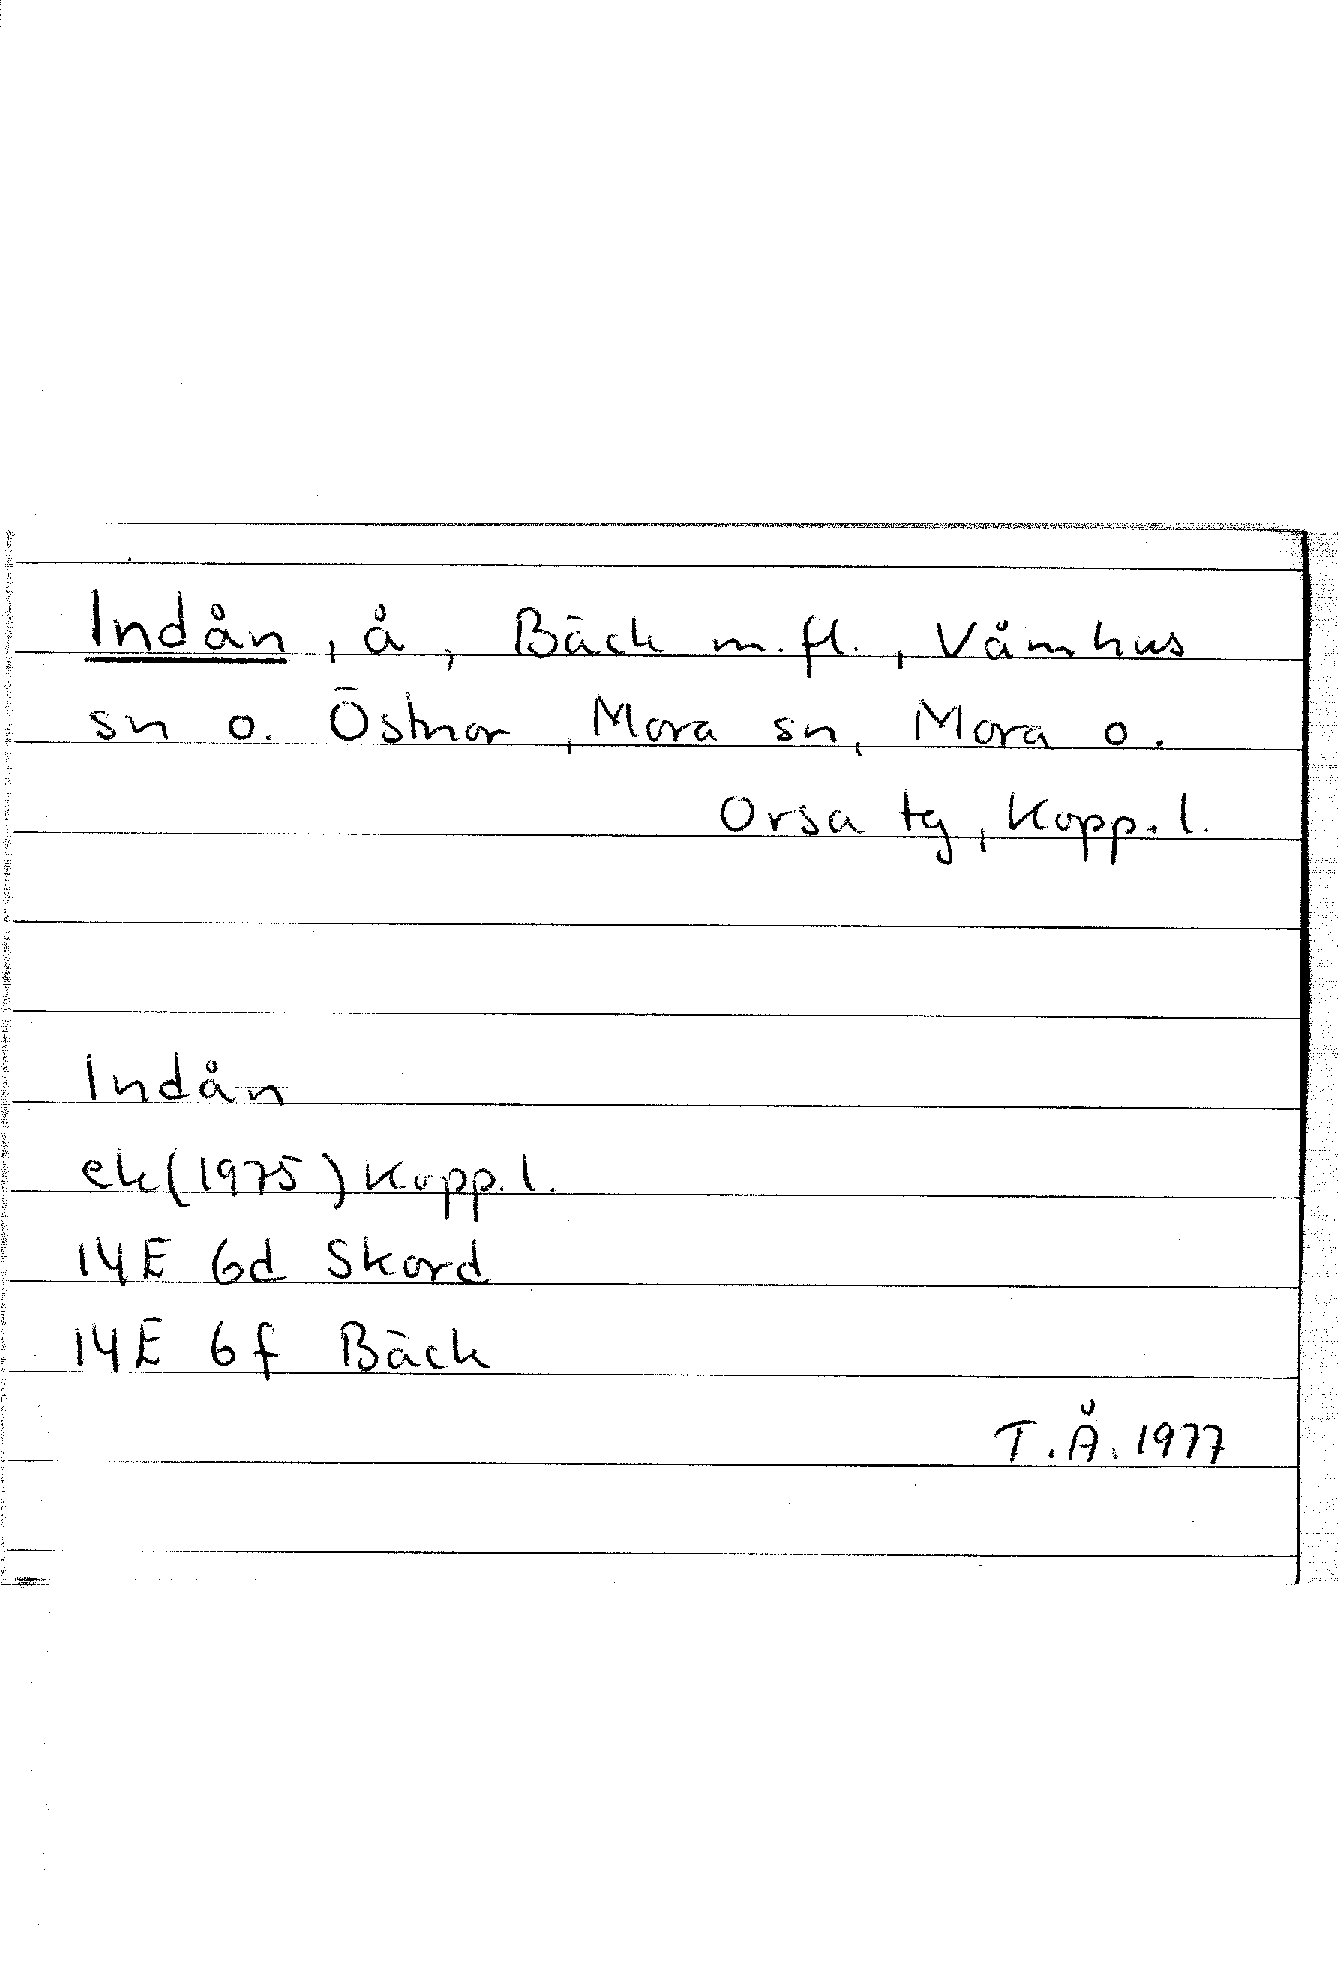 Indån, å, Bäck m.fl., Våmhus
sn o. Östnor, Mora sn, Mora o.
Orsa tg, Kopp. l.
Indån
ek (1975) Kopp. l.
14E 6d Skord
14E 6f Bäck
T.Å. 1977